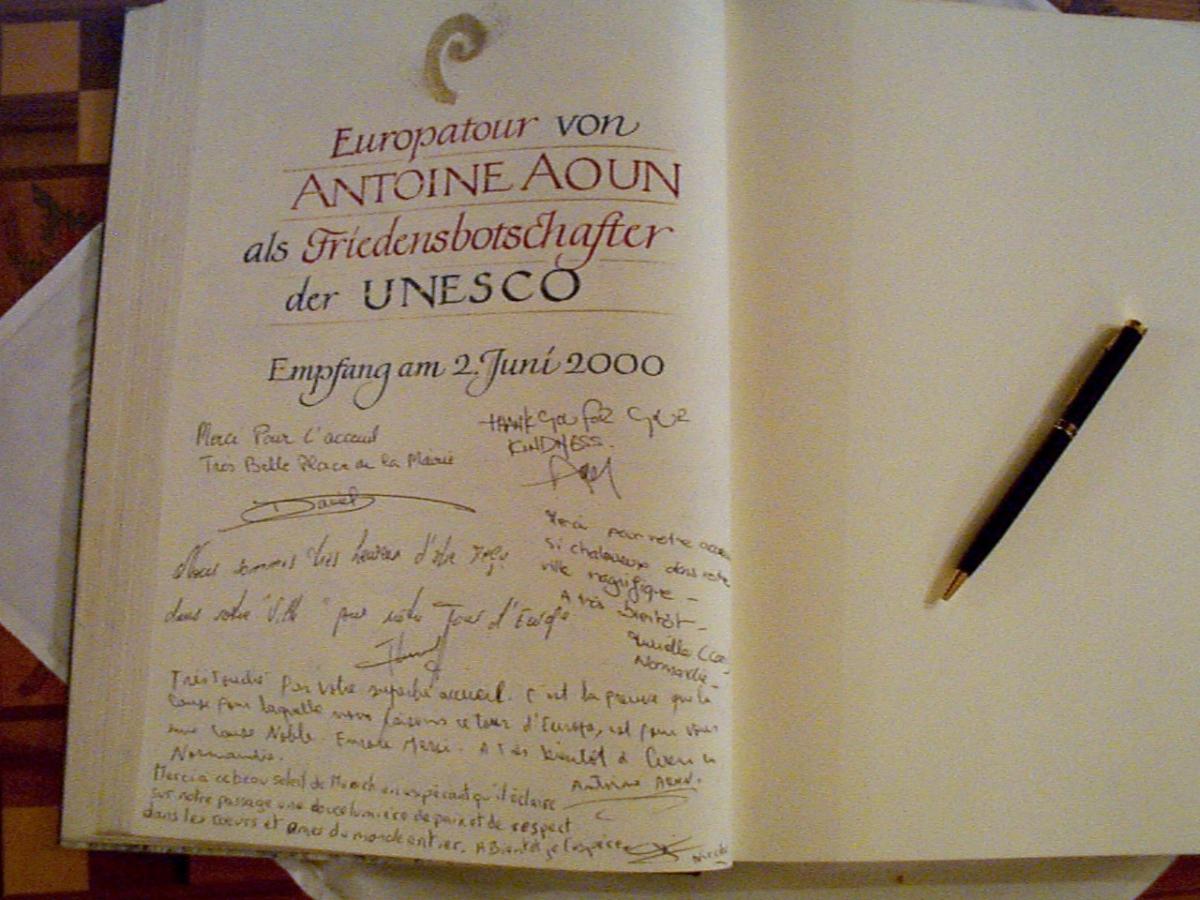 Europatour von
ANTOINE AOUN
als Friedensbotschafter
der UNESCO
Empfang am 2. Juni 2000
Merci Pour l'acceuil
Très Belle Place de la Mairie
Daniel
THANK YOU FOR YOUR
KINDNESS.
Nous sommes très heureux d'être reçu
dans votre "Ville" pour notre Tour d'Europe
Merci pour notre accueil
si chaleureux dans votre
ville magnifique -
A très bientôt -
Normandie -
Très Touché par votre superbe accueil. C'est la preuve que la
cause pour laquelle nous faisons ce tour d'Europe, est pour vous
une cause Noble. Encore Merci. A très bientôt à Caen en
Normandie.
Antoine AOUN.
Merci a ce beau soleil de Munich en espérant qu'il éclaire
sur notre passage une douce lumière de paix et de respect
dans les cœurs et âmes du monde entier. A Bientôt je l'espère